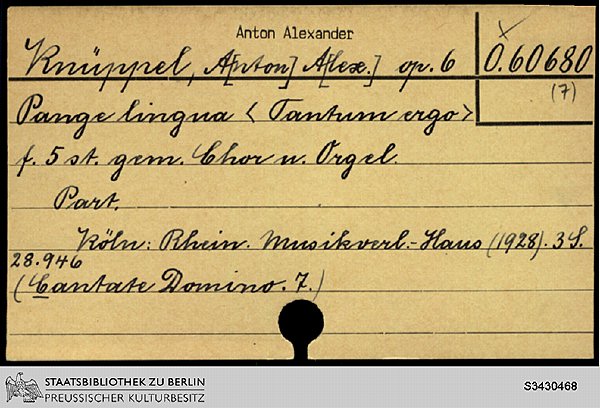 Anton Alexander
Knüppel, A[nton] A[lex.] op. 6
O.60680
(7)
Pange lingua < Tantum ergo >
f. 5 st. gem. Chor u. Orgel.
Part.
Köln: Rhein. Musikverl.-Haus (1928). 3 S.
28.946
(Cantate Domino. 7.)
STAATSBIBLIOTHEK ZU BERLIN
PREUSSISCHER KULTURBESITZ
S3430468